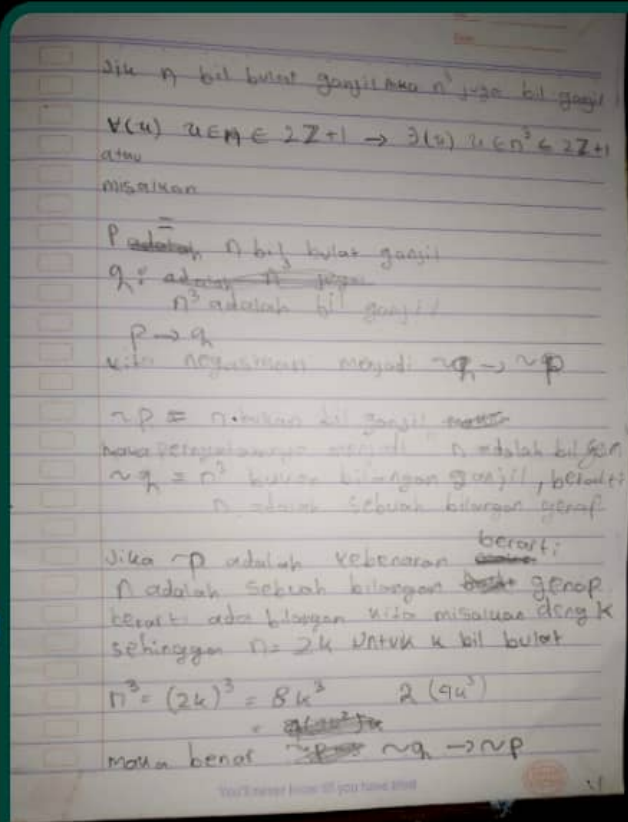 Jik n bil bulat ganjil mka n³ juga bil ganjil
∀(u) u ∈ n ∈ 2Z+1 → ∃(u) u ∈ n³ ∈ 2Z+1
atau
misalkan
P = n bil bulat ganjil
q :
n³ adalah bil ganjil
p → q
kita negasikan menjadi ~q → ~p
~p = n bukan bil ganjil
maka pernyataannya menjadi n adalah bil gen
~q = n³ bukan bilangan ganjil, berarti
n adalah sebuah bilangan genap
Jika ~p adalah kebenaran berarti
n adalah sebuah bilangan genap
berarti ada bilangan kita misalkan deng k
sehingga n = 2k untuk k bil bulat
n³ = (2k)³ = 8k³ 2(4k³)
maka benar ~q → ~p
You'll never know till you have tried